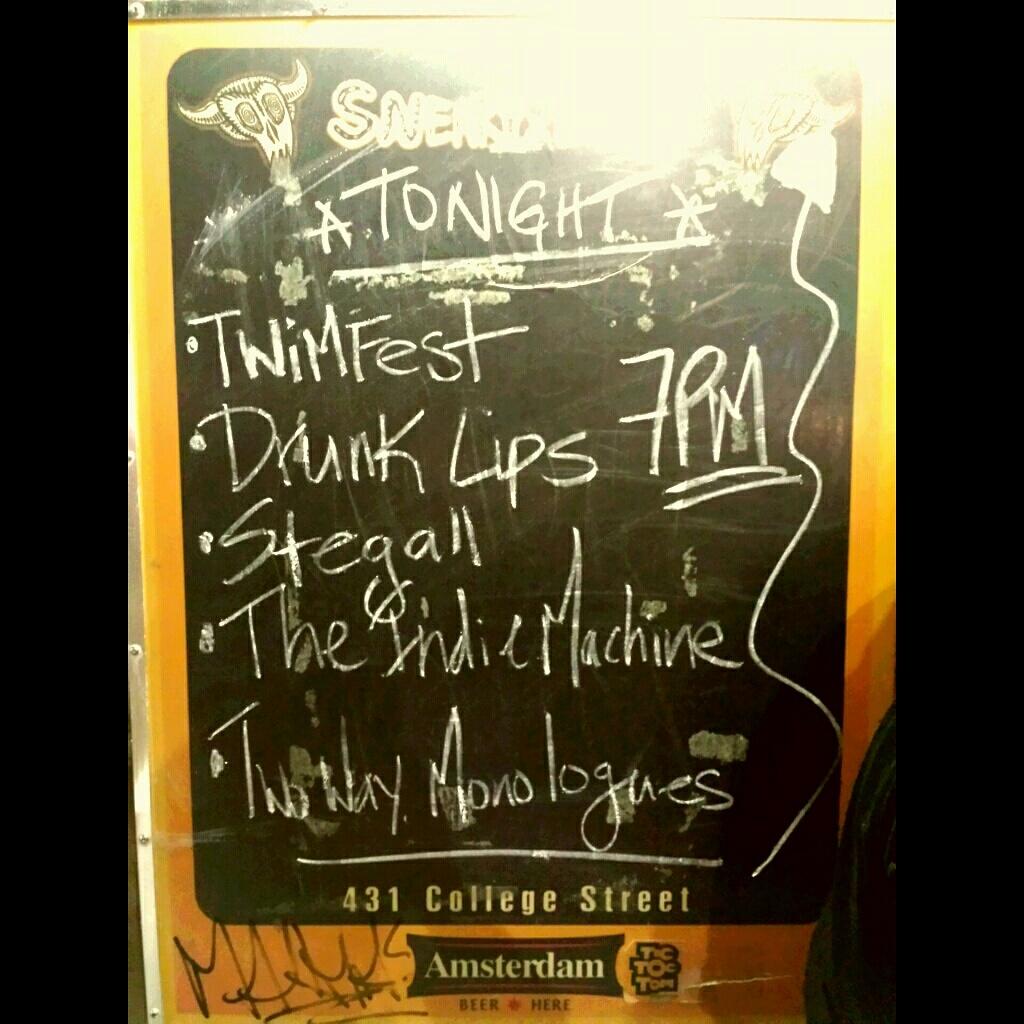 TONIGHT
TWiMFest
7PM
Drunk Lips
Stegall
The Indie Machine
Two Way Monologues
431 College Street
Amsterdam
BEER HERE
TIC
TOC
TOM